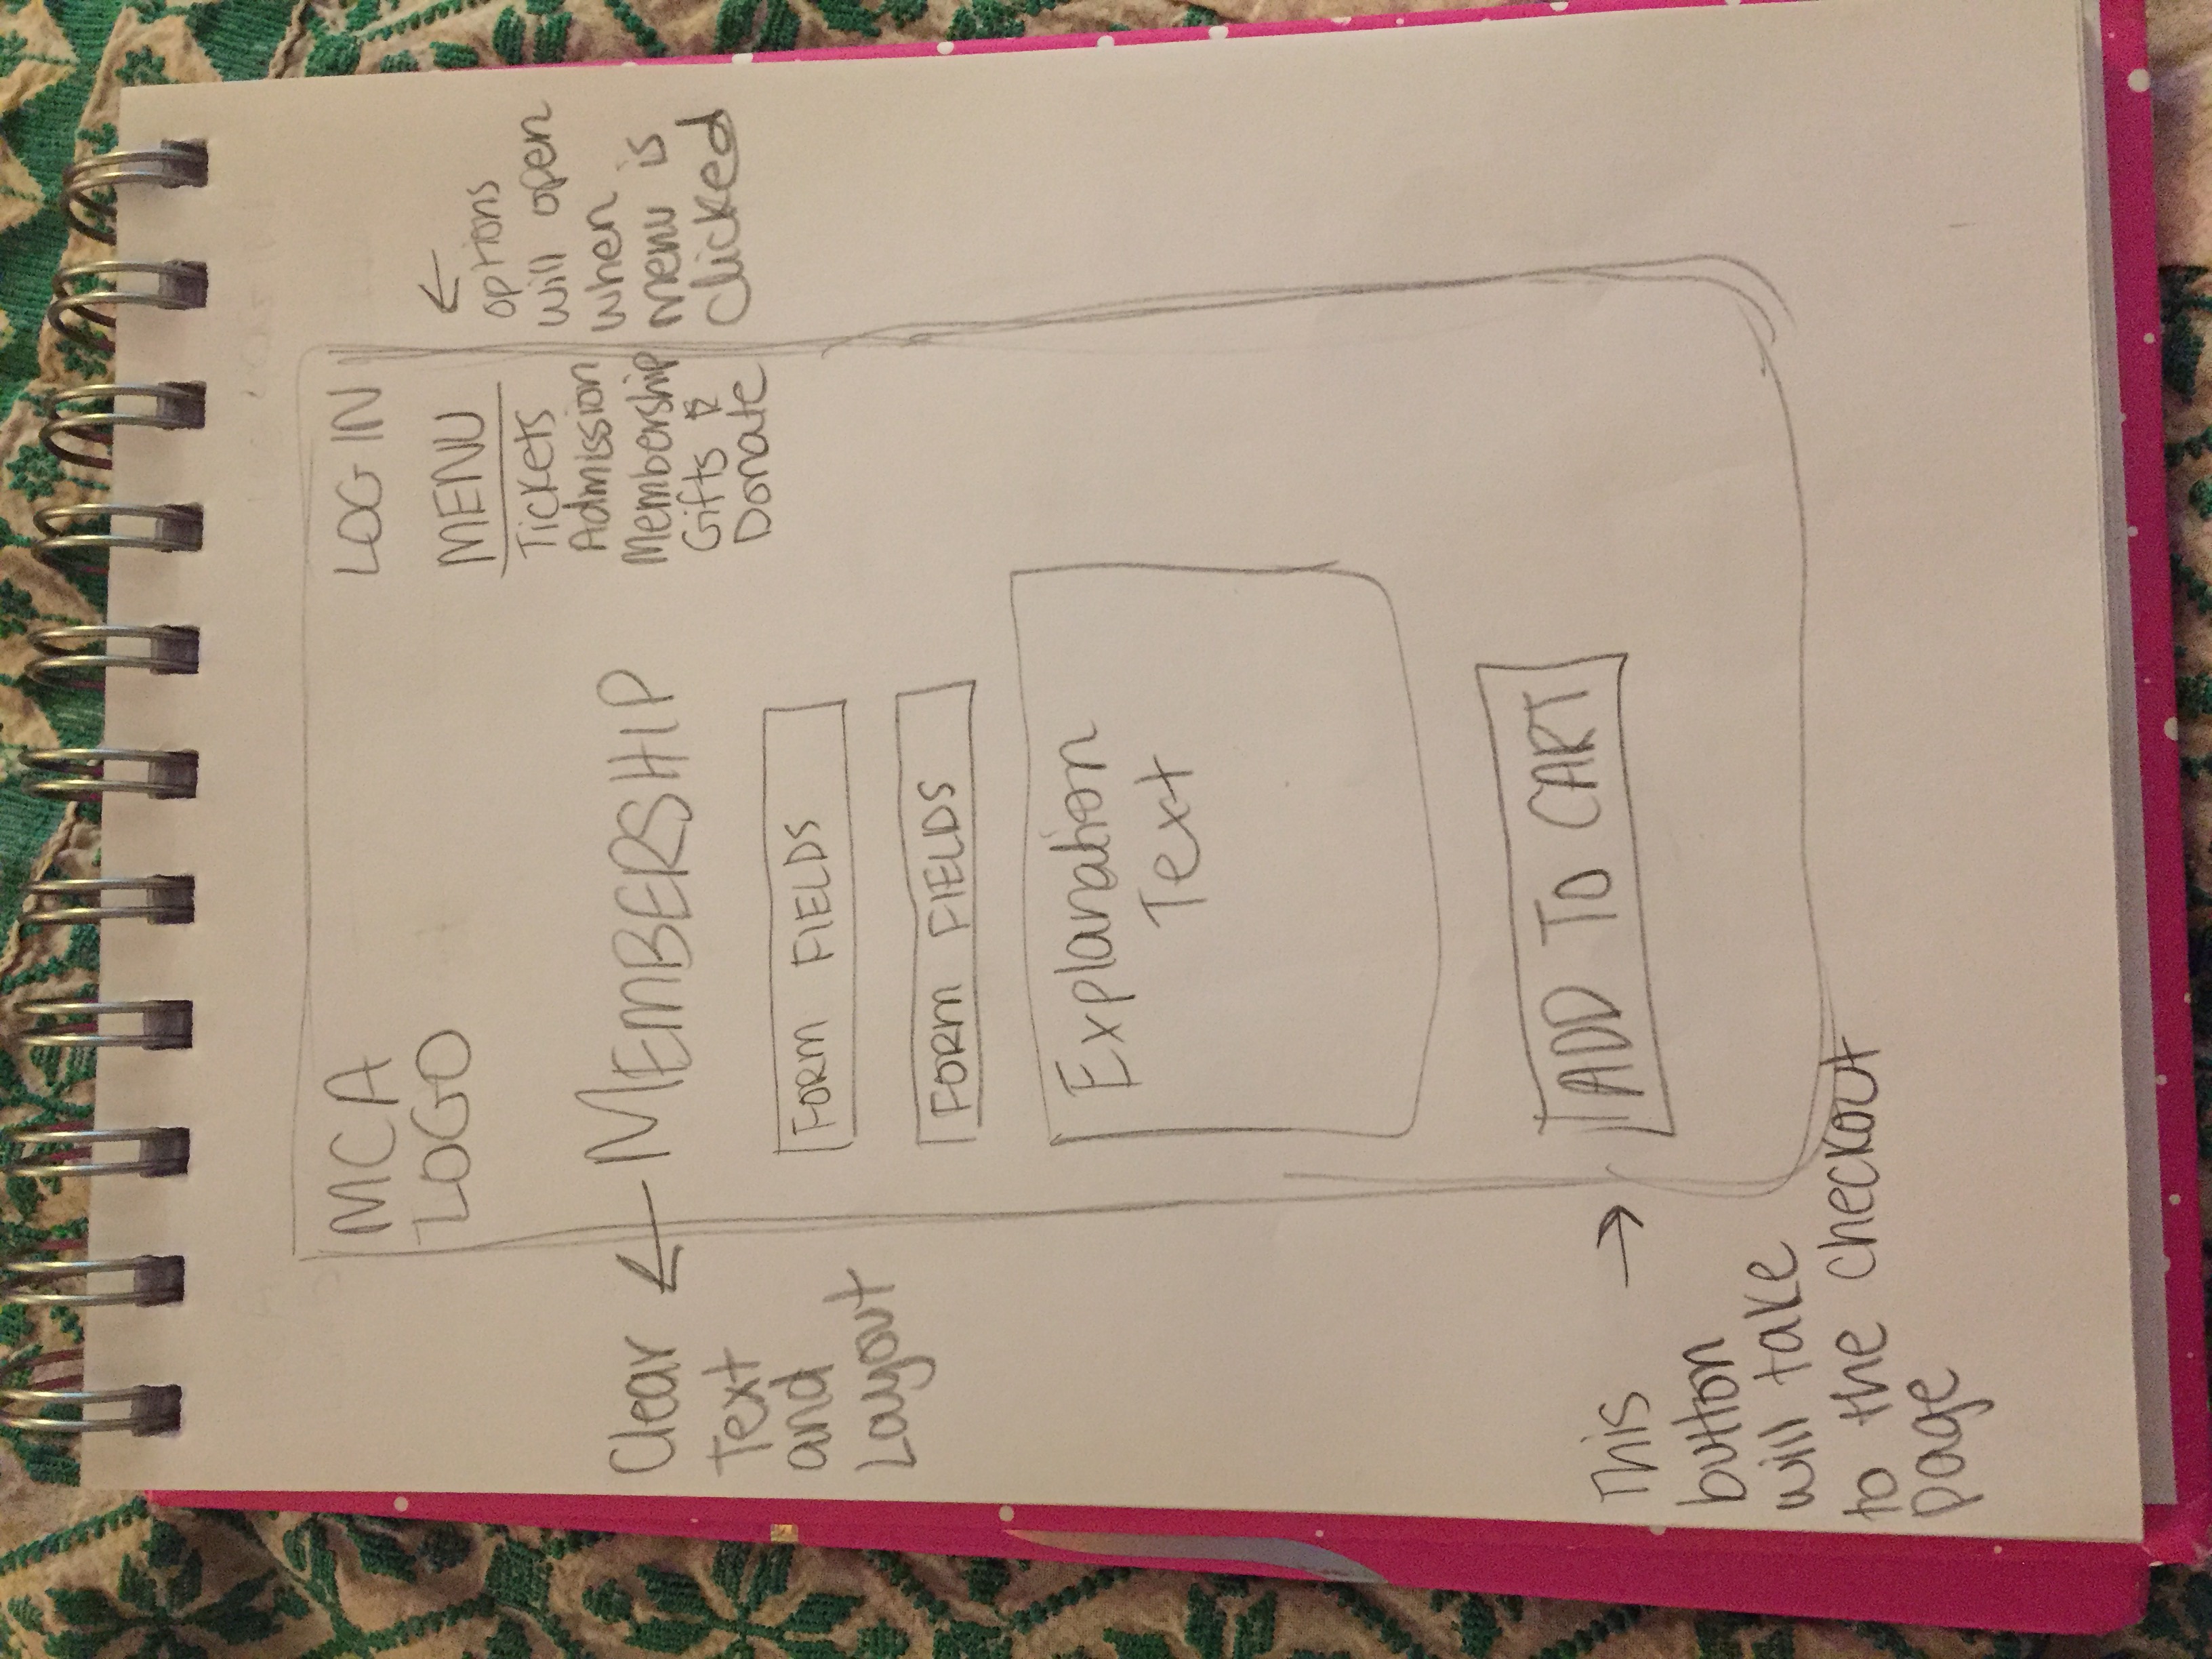 MCA
LOGO
LOG IN
MENU
Tickets
Admission
Membership
Gifts &
Donate
←
options
will open
when
menu is
clicked
MEMBERSHIP
Clear
Text
and
Layout
FORM FIELDS
FORM FIELDS
Explanation
Text
ADD TO CART
This
button
will take
to the checkout
page